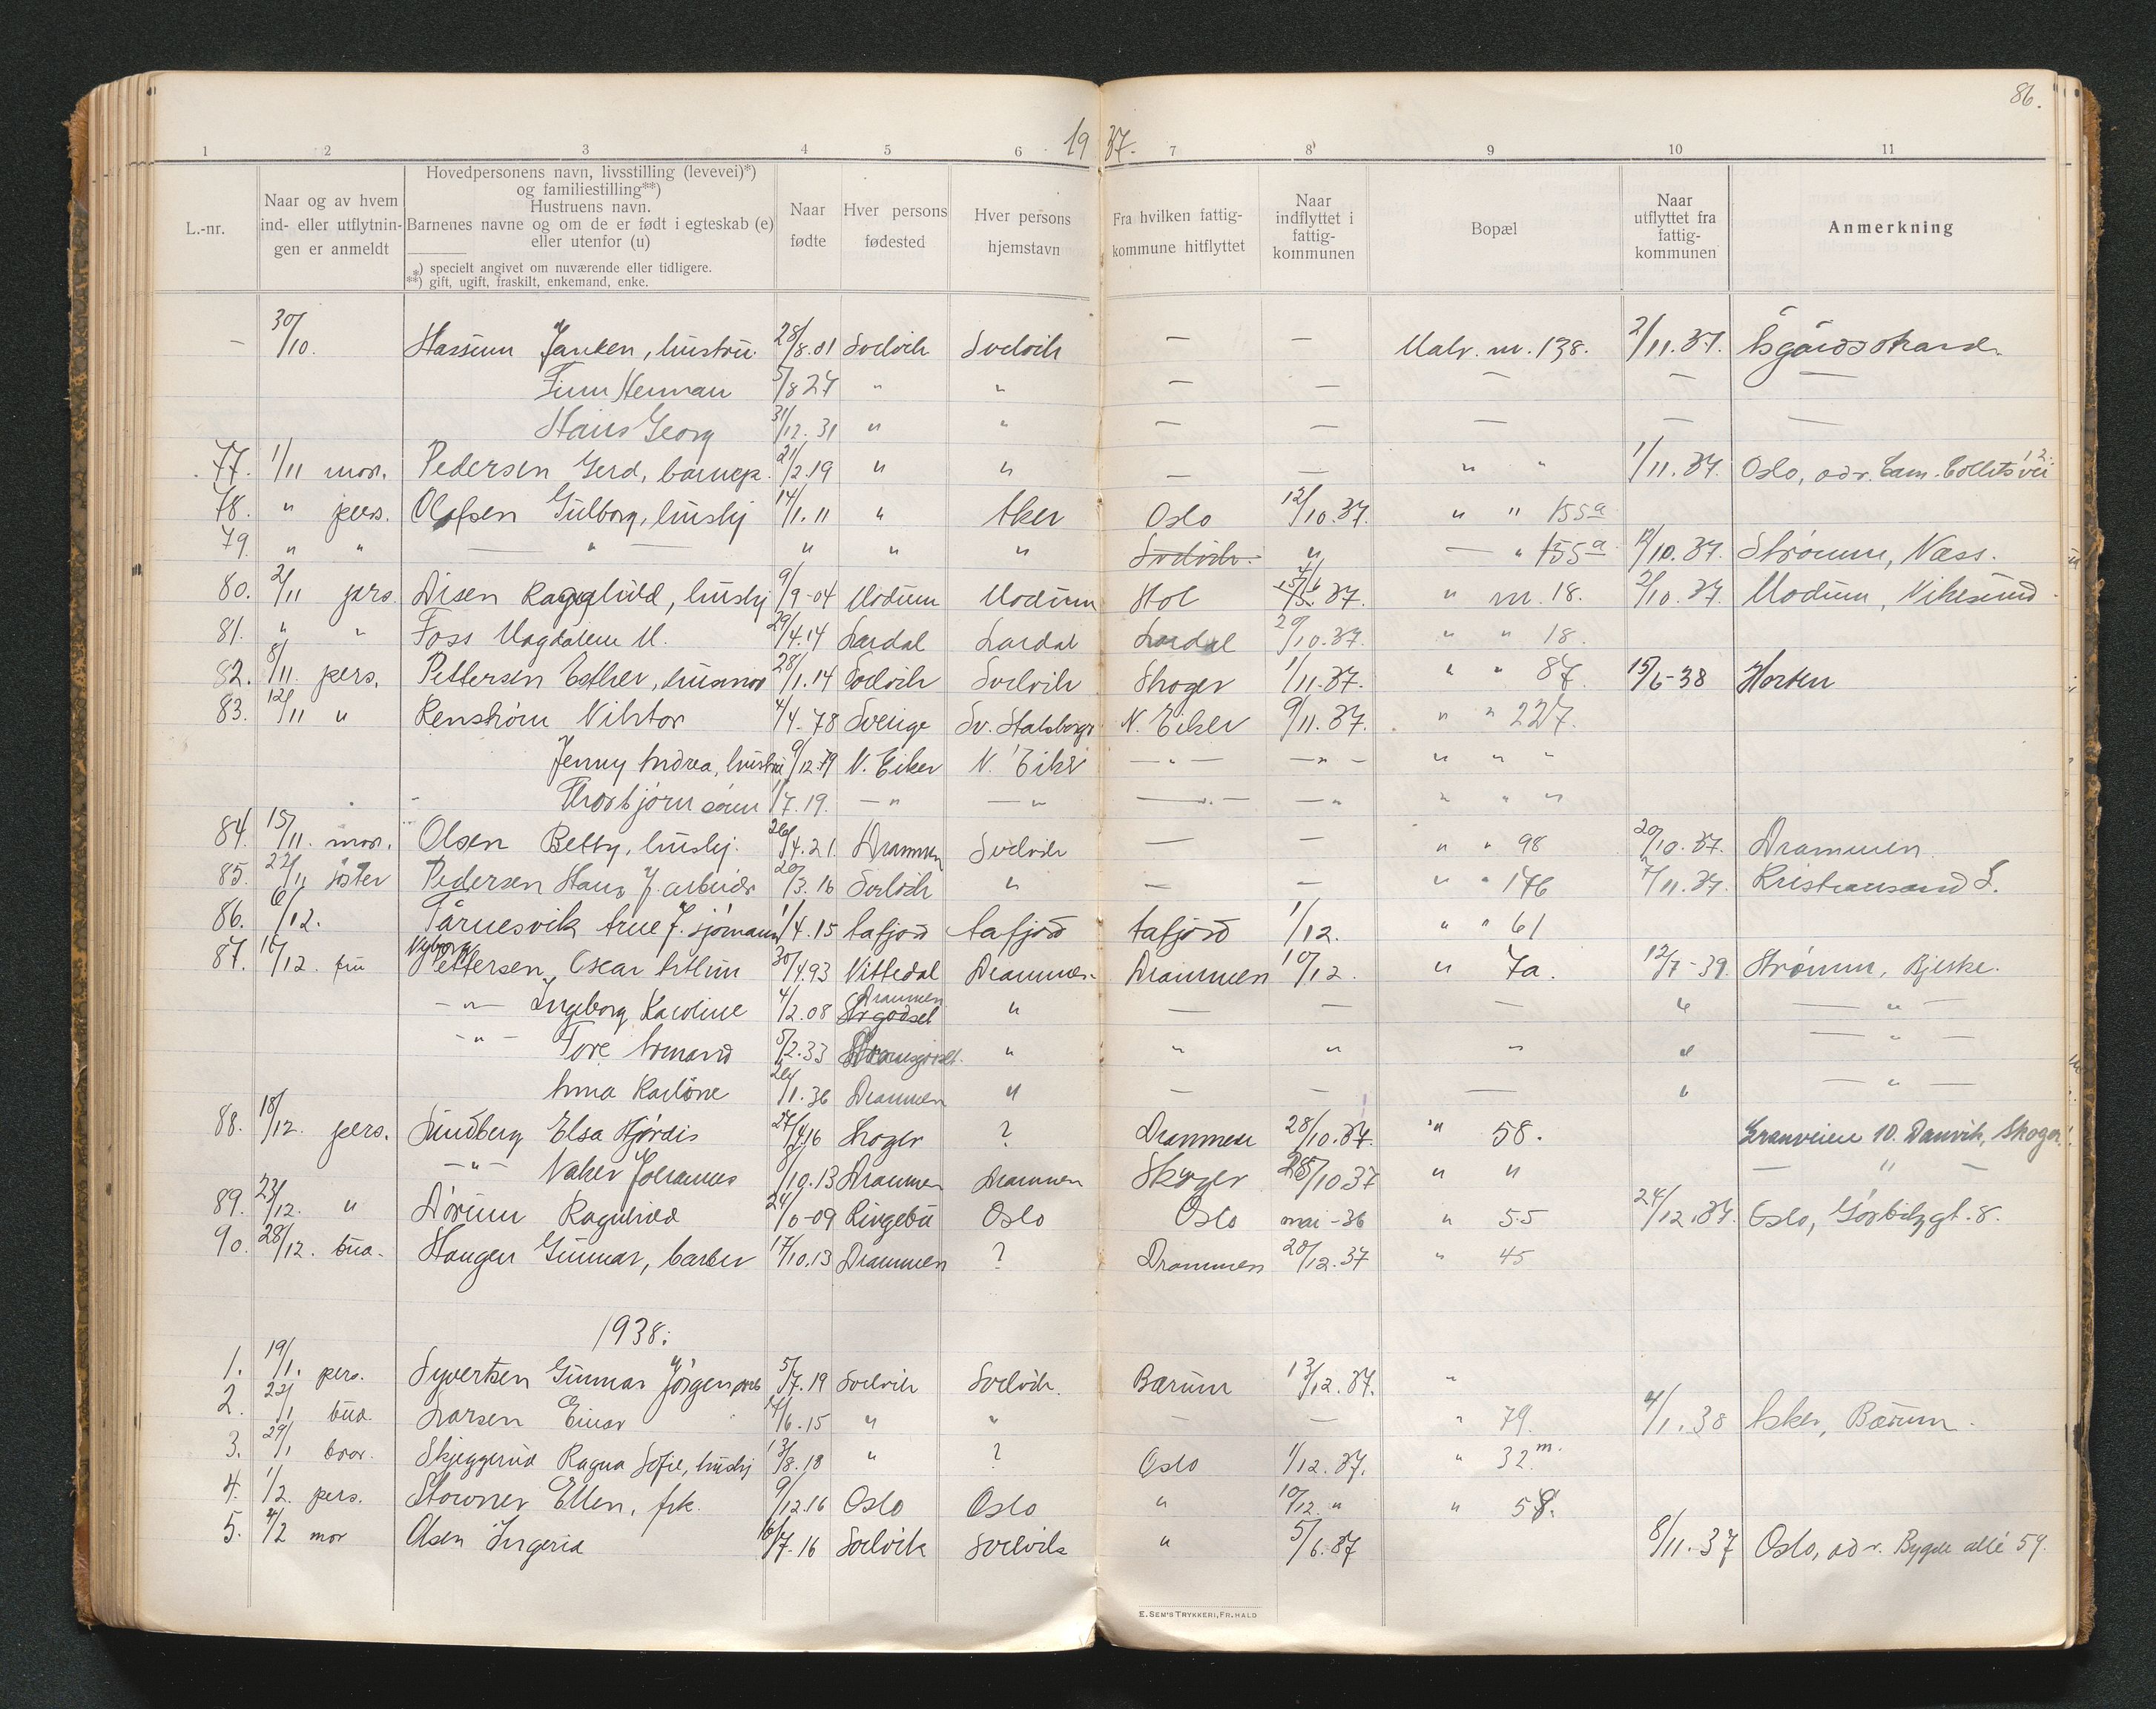 86.
19 37.
1 2 3 4 5 6 7 8 9 10 11
L.-nr.
Naar og av hvem ind- eller utflytnin- gen er anmeldt
Hovedpersonens navn, livsstilling (levevei)*) og familiestilling**) Hustruens navn. Barnenes navne og om de er født i egteskab (e) eller utenfor (u)
*) specielt angivet om nuværende eller tidligere.
**) gift, ugift, fraskilt, enkemand, enke.
Naar fødte
Hver persons fødested
Hver persons hjemstavn
Fra hvilken fattig- kommune hitflyttet
Naar indflyttet i fattig- kommunen
Bopæl
Naar utflyttet fra fattig- kommunen
Anmerkning
- 30/10. Hassum Janken, hustru. 28/8.01 Svelvik Svelvik — — Matr. nr. 138. 2/11.37. Åsgårdstrand.
Finn Herman 5/8 27 " " — — — — —
Hans Georg 31/12.31 " " — — — — —
77. 1/11 mor. Pedersen Gerd, barnep. 21/2.19 " " — — " " 1/11.37. Oslo, adr. Cam. Colletsvei 12.
78. " pers. Olafsen Gulborg, hushj 14/1.11 " Aker Oslo 12/10.37. " " 155a
79. " " — " — " " " Svelvik. " — " 155a 12/10.37. Strømm, Næss.
80. 2/11 pers. Disen Ragnhild, hushj 9/9-04 Modum Modum Hol 37. " nr. 18. 2/10.37. Modum, Vikesund
81. " " Foss Magdalene M. 29/4.14 Lardal Lardal Lardal 20/10.37. " " 18.
82. 8/11. pers. Pettersen Esther, husmor 28/1.14 Svelvik Svelvik Skoger 1/11.37. " " 87. 15/6-38 Horten
83. 12/11 " Renstrøm Viktor 4/4-78 Sverige Sv. Statsborger N. Eiker 9/11.37. " " 227.
Jenny Andrea, hustru 9/12.79 N. Eiker N. Eiker — " — — " — " " "
Thorbjørn sønn 1/7.19. — " — " — " — — " " " "
84. 15/11. mor. Olsen Betty, hushj. 26/4.21. Drammen Svelvik — — " " 98 20/10.37. Drammen
85. 22/11 søster Pedersen Hans J. arbeider 20/3.16 Svelvik " — — " " 176 7/11.37. Kristiansand S.
86. 6/12. Tårnesvik Arne J. sjømann 1/4.15 Aafjord Aafjord Aafjord 1/12. " " 61
87. 10/12. fru Nyborg Pettersen, Oscar Anthun 30/4.93 Nittedal Drammen Drammen 10/12. " 7a. 12/7-39. Strømm, Bjerke.
— " — Ingeborg Karoline 4/2.08 Drammen Strgodset " — — — " — " —
— " — Tore Armand 5/2.33 " " " " " — " —
Anna Karline 26/1.36 Drammen " — — — " — " —
88. 18/12. pers. Sundberg Elsa Hjørdis 27/4.16 Skoger ? Drammen 28/10.37. " 58. Granveien 10. Danvik, Skoger.
— " — Johannes /10.13 Drammen Drammen Skoger 28/10 37 " " — " —
89. 23/12. " Dørum Ragnhild 24/10-09 Ringebu Oslo Oslo mai-36 " 55 24/12.37. Oslo, Gørbitzgt. 8.
90. 28/12. bua. Haugen Gunnar, barber 17/10.13 Drammen ? Drammen 20/12.37 " 45
1938:
1. 19/1. pers. Syvertsen Gunnar Jørgen arb 5/7.19 Svelvik Svelvik. Bærum 13/12.37. "
2. 22/1 bua. Larsen Einar 14/6.15 " " — — " 79. 4/1.38 Asker, Bærum.
3. 29/1 bror. Skjeggerud Ragna Sofie, hushj 13/8.18 " ? Oslo 1/12.37. " 32 m.
4. 1/2. pers. Stowner Ellen, frk. 9/12.16 Oslo Oslo " 10/12. " " 58.
5. 4/2 mor Olsen Ingerid 16/7.16 Svelvik Svelvik " 5/6.37 8/11.37 Oslo, adr. Bygdø allé 59.
E. SEM'S TRYKKERI, FR. HALD